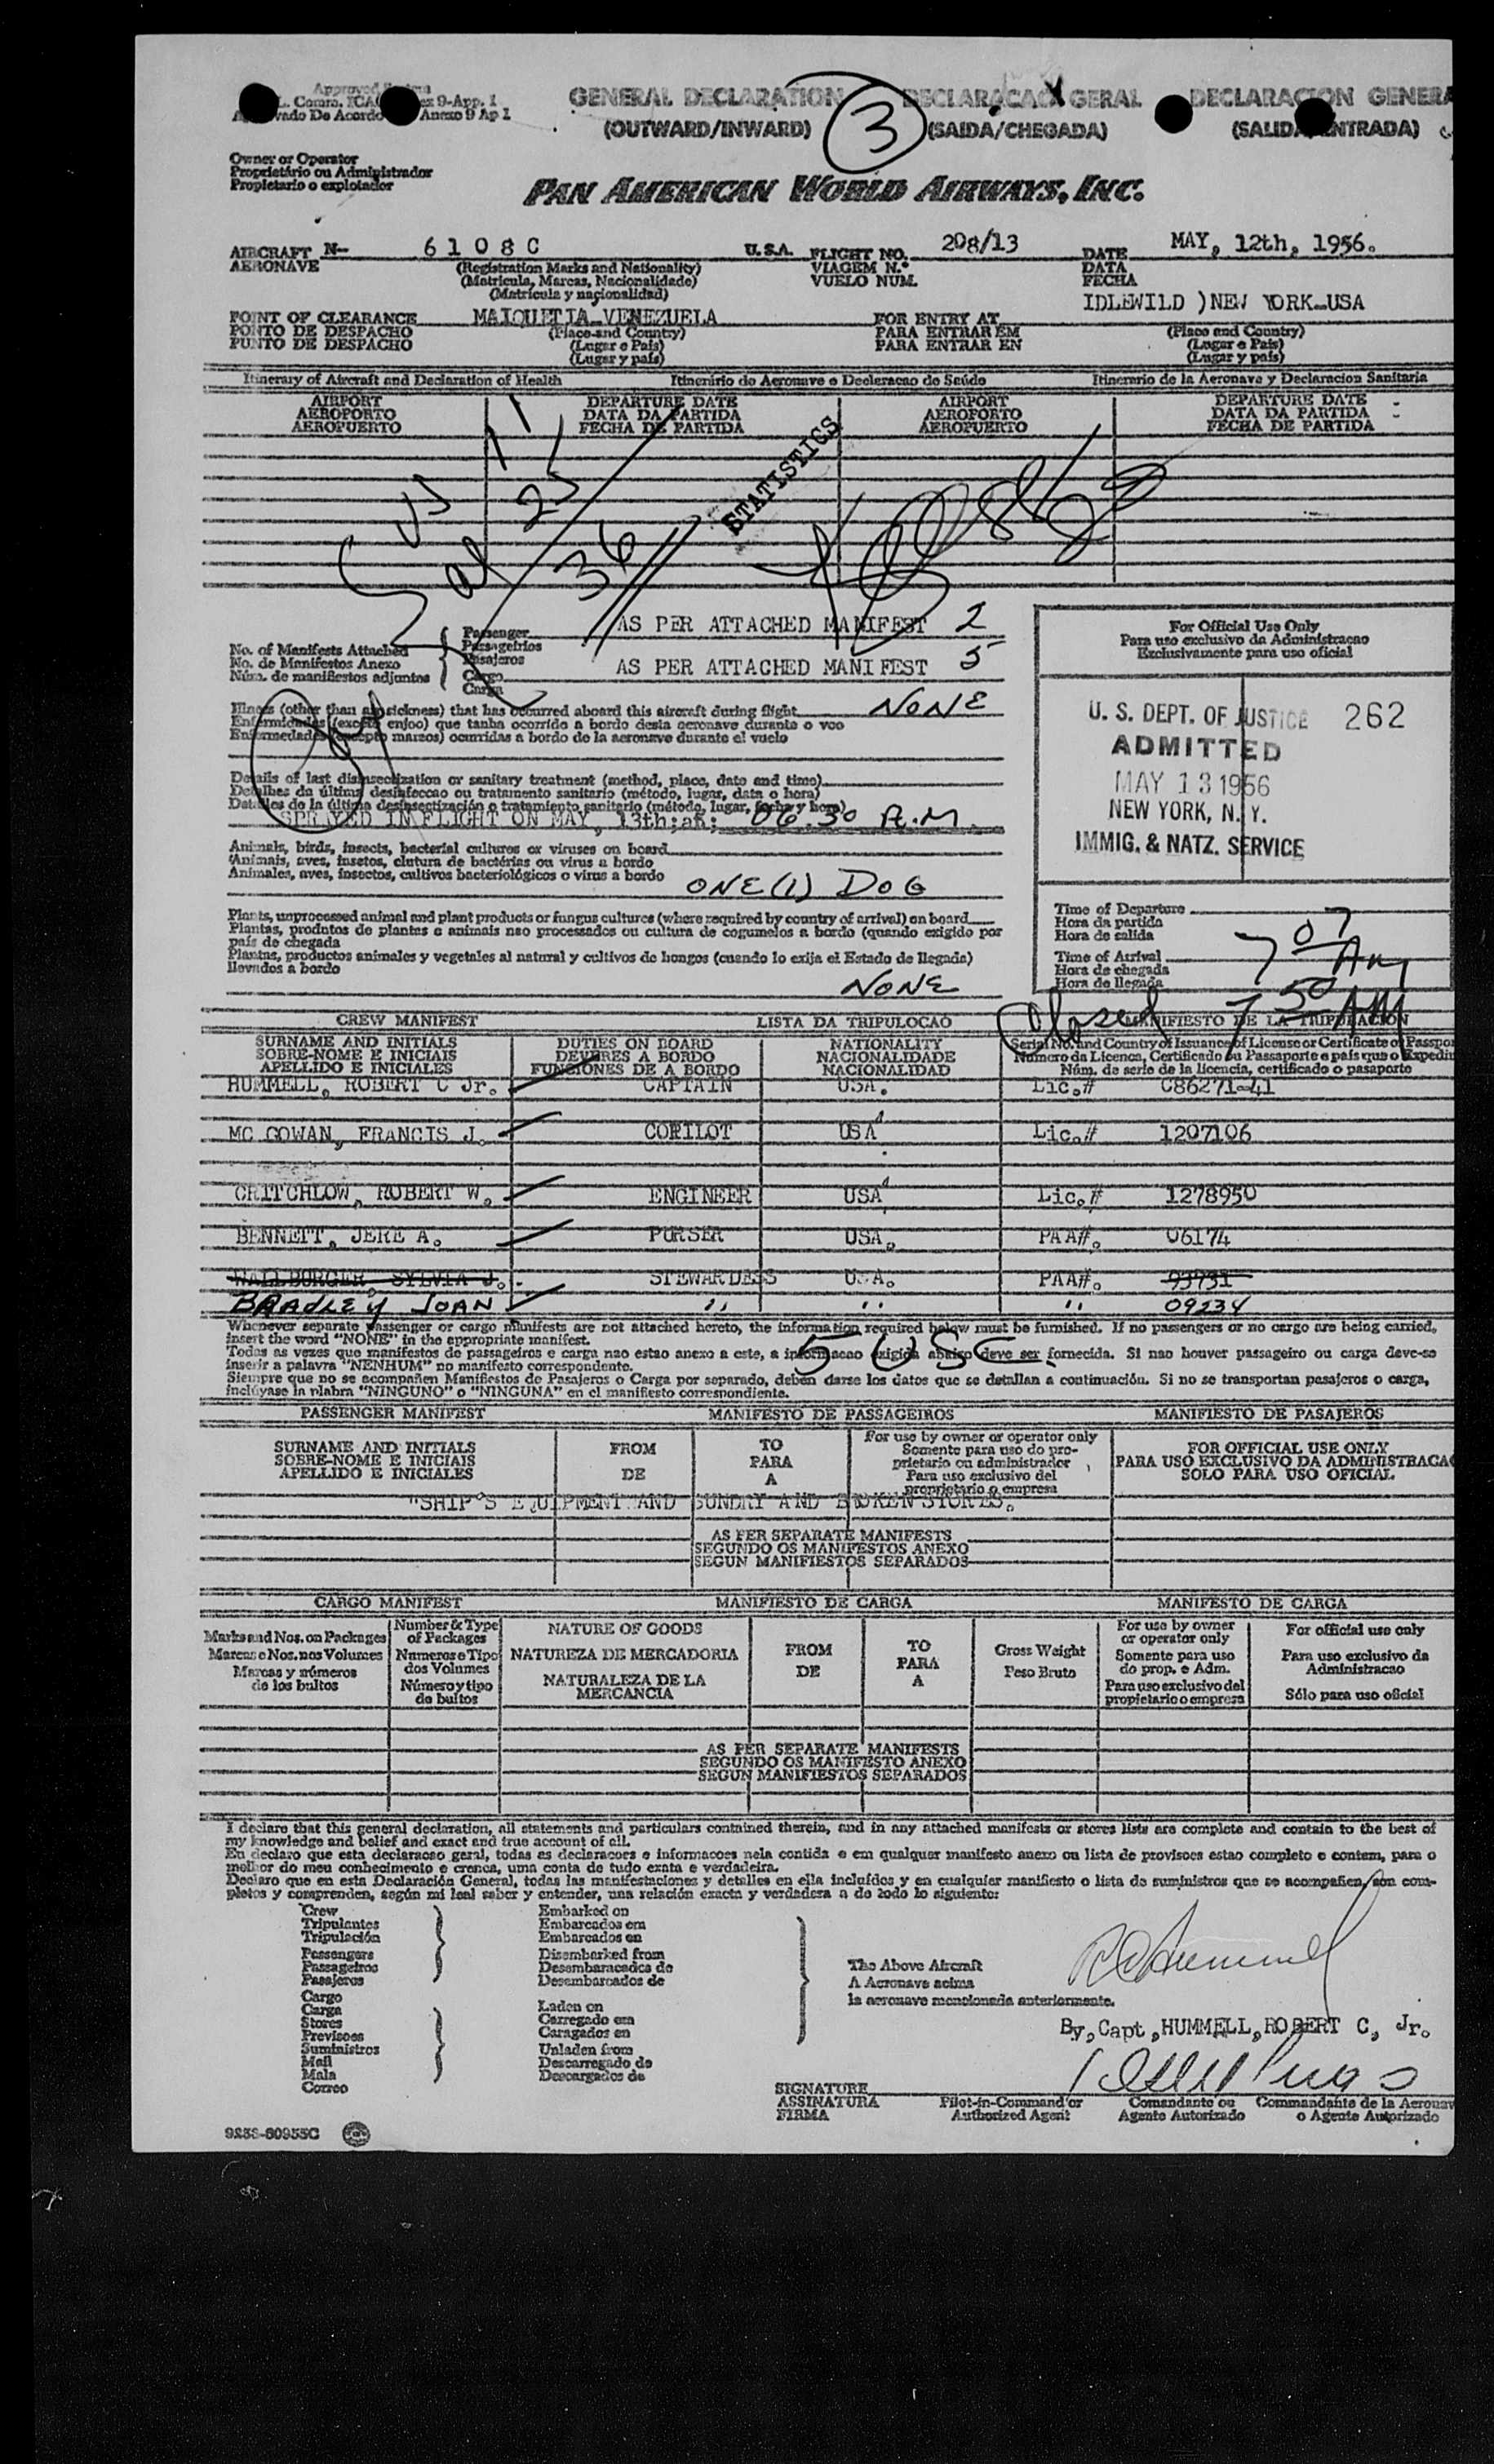 GENERAL DECLARATION
(OUTWARD/INWARD)
3
DECLARACAO GERAL
(SAIDA/CHEGADA)
DECLARACION GENERA
Owner or Operator
Proprietário ou Administrador
Propietario o explotador
PAN AMERICAN WORLD AIRWAYS, INC.
AIRCRAFT N- 6108C U.S.A. FLIGHT NO. 208/13 DATE MAY, 12th, 1956.
AERONAVE (Registration Marks and Nationality) VIAGEM N.º DATA
(Matricula, Marcas, Nacionalidade) VUELO NUM. FECHA
(Matrícula y nacionalidad)
POINT OF CLEARANCE MAIQUETIA VENEZUELA FOR ENTRY AT IDLEWILD )NEW YORK-USA
PONTO DE DESPACHO (Place and Country) PARA ENTRAR EM (Place and Country)
PUNTO DE DESPACHO (Lugar e País) PARA ENTRAR EN (Lugar e País)
(Lugar y país) (Lugar y país)
Itinerary of Aircraft and Declaration of Health Itinerário do Aeronave e Declaracao de Saúde Itinerario de la Aeronave y Declaracion Sanitaria
AIRPORT DEPARTURE DATE AIRPORT DEPARTURE DATE
AEROPORTO DATA DA PARTIDA AEROPORTO DATA DA PARTIDA
AEROPUERTO FECHA DE PARTIDA AEROPUERTO FECHA DE PARTIDA
US 11
al 25
36
STATISTICS
No. of Manifests Attached
No. de Manifestos Anexo
Núm. de manifiestos adjuntos
Passenger AS PER ATTACHED MANIFEST 2
Passageirios
Pasajeros
Cargo AS PER ATTACHED MANIFEST 5
Carga
Illness (other than airsickness) that has occurred aboard this aircraft during flight NONE
Enfermidades (exceto enjoo) que tenha ocorrido a bordo desta aeronave durante o voo
Enfermedades (excepto mareos) ocurridas a bordo de la aeronave durante el vuelo
Details of last disinsectization or sanitary treatment (method, place, date and time)
Detalhes da última desinfeccao ou tratamento sanitario (método, lugar, data o hora)
Detalles de la última desinsectización o tratamiento sanitario (método, lugar, fecha y hora)
SPRAYED IN FLIGHT ON MAY, 13th;at; 06.30 A.M.
Animals, birds, insects, bacterial cultures or viruses on board
Animais, aves, insetos, clutura de bactérias ou virus a bordo
Animales, aves, insectos, cultivos bacteriológicos o virus a bordo ONE(1) DOG
Plants, unprocessed animal and plant products or fungus cultures (where required by country of arrival) on board
Plantas, produtos de plantas e animais nao processados ou cultura de cogumelos a bordo (quando exigido por
país de chegada
Plantas, productos animales y vegetales al natural y cultivos de hongos (cuando lo exija el Estado de llegada)
llevados a bordo
NONE
For Official Use Only
Para uso exclusivo da Administracao
Exclusivamente para uso oficial
U. S. DEPT. OF JUSTICE 262
ADMITTED
MAY 13 1956
NEW YORK, N. Y.
IMMIG. & NATZ. SERVICE
Time of Departure
Hora da partida
Hora de salida
Time of Arrival 7 07 AM
Hora de chegada
Hora de llegada
Closed 7 50 AM
CREW MANIFEST LISTA DA TRIPULOCAO MANIFIESTO DE LA TRIPULACION
SURNAME AND INITIALS DUTIES ON BOARD NATIONALITY Serial No. and Country of Issuance of License or Certificate or Passpor
SOBRE-NOME E INICIAIS DEVERES A BORDO NACIONALIDADE Numero da Licenca, Certificado ou Passaporte e país que o Expediu
APELLIDO E INICIALES FUNCIONES DE A BORDO NACIONALIDAD Núm. de serie de la licencia, certificado o pasaporte
HUMMELL, ROBERT C Jr. CAPTAIN USA. Lic.# C86271-41
MC GOWAN, FRANCIS J. COPILOT USA Lic.# 1207106
CRITCHLOW, ROBERT W. ENGINEER USA Lic.# 1278950
BENNETT, JERE A. PURSER USA. PAA#. 06174
STEWARDESS USA. PAA#. 93731
BRADLEY JOAN " " " 09234
Whenever separate passenger or cargo manifests are not attached hereto, the information required below must be furnished. If no passengers or no cargo are being carried,
insert the word "NONE" in the appropriate manifest.
Todas as vezes que manifestos de passageiros e carga nao estao anexo a este, a informacao exigida abaixo deve ser fornecida. Si nao houver passageiro ou carga deve-se
inserir a palavra "NENHUM" no manifesto correspondente.
Siempre que no se acompañen Manifiestos de Pasajeros o Carga por separado, deben darse los datos que se detallan a continuación. Si no se transportan pasajeros o carga,
inclúyase la plabra "NINGUNO" o "NINGUNA" en el manifiesto correspondiente.
5 USC.
PASSENGER MANIFEST MANIFESTO DE PASSAGEIROS MANIFIESTO DE PASAJEROS
SURNAME AND INITIALS FROM TO For use by owner or operator only FOR OFFICIAL USE ONLY
SOBRE-NOME E INICIAIS DE PARA Somente para uso do pro- PARA USO EXCLUSIVO DA ADMINISTRACAO
APELLIDO E INICIALES A prietario ou administrador SOLO PARA USO OFICIAL
Para uso exclusivo del
proprietario o empresa
"SHIP'S EQUIPMENT AND SUNDRY AND BROKEN STORES.
AS PER SEPARATE MANIFESTS
SEGUNDO OS MANIFESTOS ANEXO
SEGUN MANIFIESTOS SEPARADOS
CARGO MANIFEST MANIFIESTO DE CARGA MANIFESTO DE CARGA
Marks and Nos. on Packages Number & Type of Packages NATURE OF GOODS FROM TO Gross Weight For use by owner or operator only For official use only
Marcas e Nos. nos Volumes Numeros e Tipo dos Volumes NATUREZA DE MERCADORIA DE PARA Peso Bruto Somente para uso do prop. e Adm. Para uso exclusivo da Administracao
Marcas y números de los bultos Número y tipo de bultos NATURALEZA DE LA MERCANCIA A Para uso exclusivo del propietario o empresa Sólo para uso oficial
AS PER SEPARATE MANIFESTS
SEGUNDO OS MANIFESTO ANEXO
SEGUN MANIFIESTOS SEPARADOS
I declare that this general declaration, all statements and particulars contained therein, and in any attached manifests or stores lists are complete and contain to the best of
my knowledge and belief and exact and true account of all.
Eu declaro que esta declaracao geral, todas as declaracoes e informacoes nela contida e em qualquer manifesto anexo ou lista de provisoes estao completo e contem, para o
melhor do meu conhecimento e crenca, uma conta de tudo exata e verdadeira.
Declaro que en esta Declaración General, todas las manifestaciones y detalles en ella incluídos y en cualquier manifiesto o lista de suministros que se acompañen, son com-
pletos y comprenden, según mi leal saber y entender, una relación exacta y verdadera a de todo lo siguiente:
Crew Embarked on
Tripulantes Embarcados em
Tripulación Embarcados en
Passengers Disembarked from
Passageiros Desembaracados de
Pasajeros Desembarcados de
Cargo
Carga Laden on
Stores Carregado em
Previsoes Caragados en
Suministros Unladen from
Mail Descarregado do
Mala Descargados de
Correo
The Above Aircraft
A Aeronave acima
la aeronave mencionada anteriormente.
R C Hummell
By, Capt, HUMMELL, ROBERT C, Jr.
SIGNATURE
ASSINATURA Pilot-in-Command or Comandante ou Commandante de la Aeronav
FIRMA Authorized Agent Agente Autorizado o Agente Autorizado